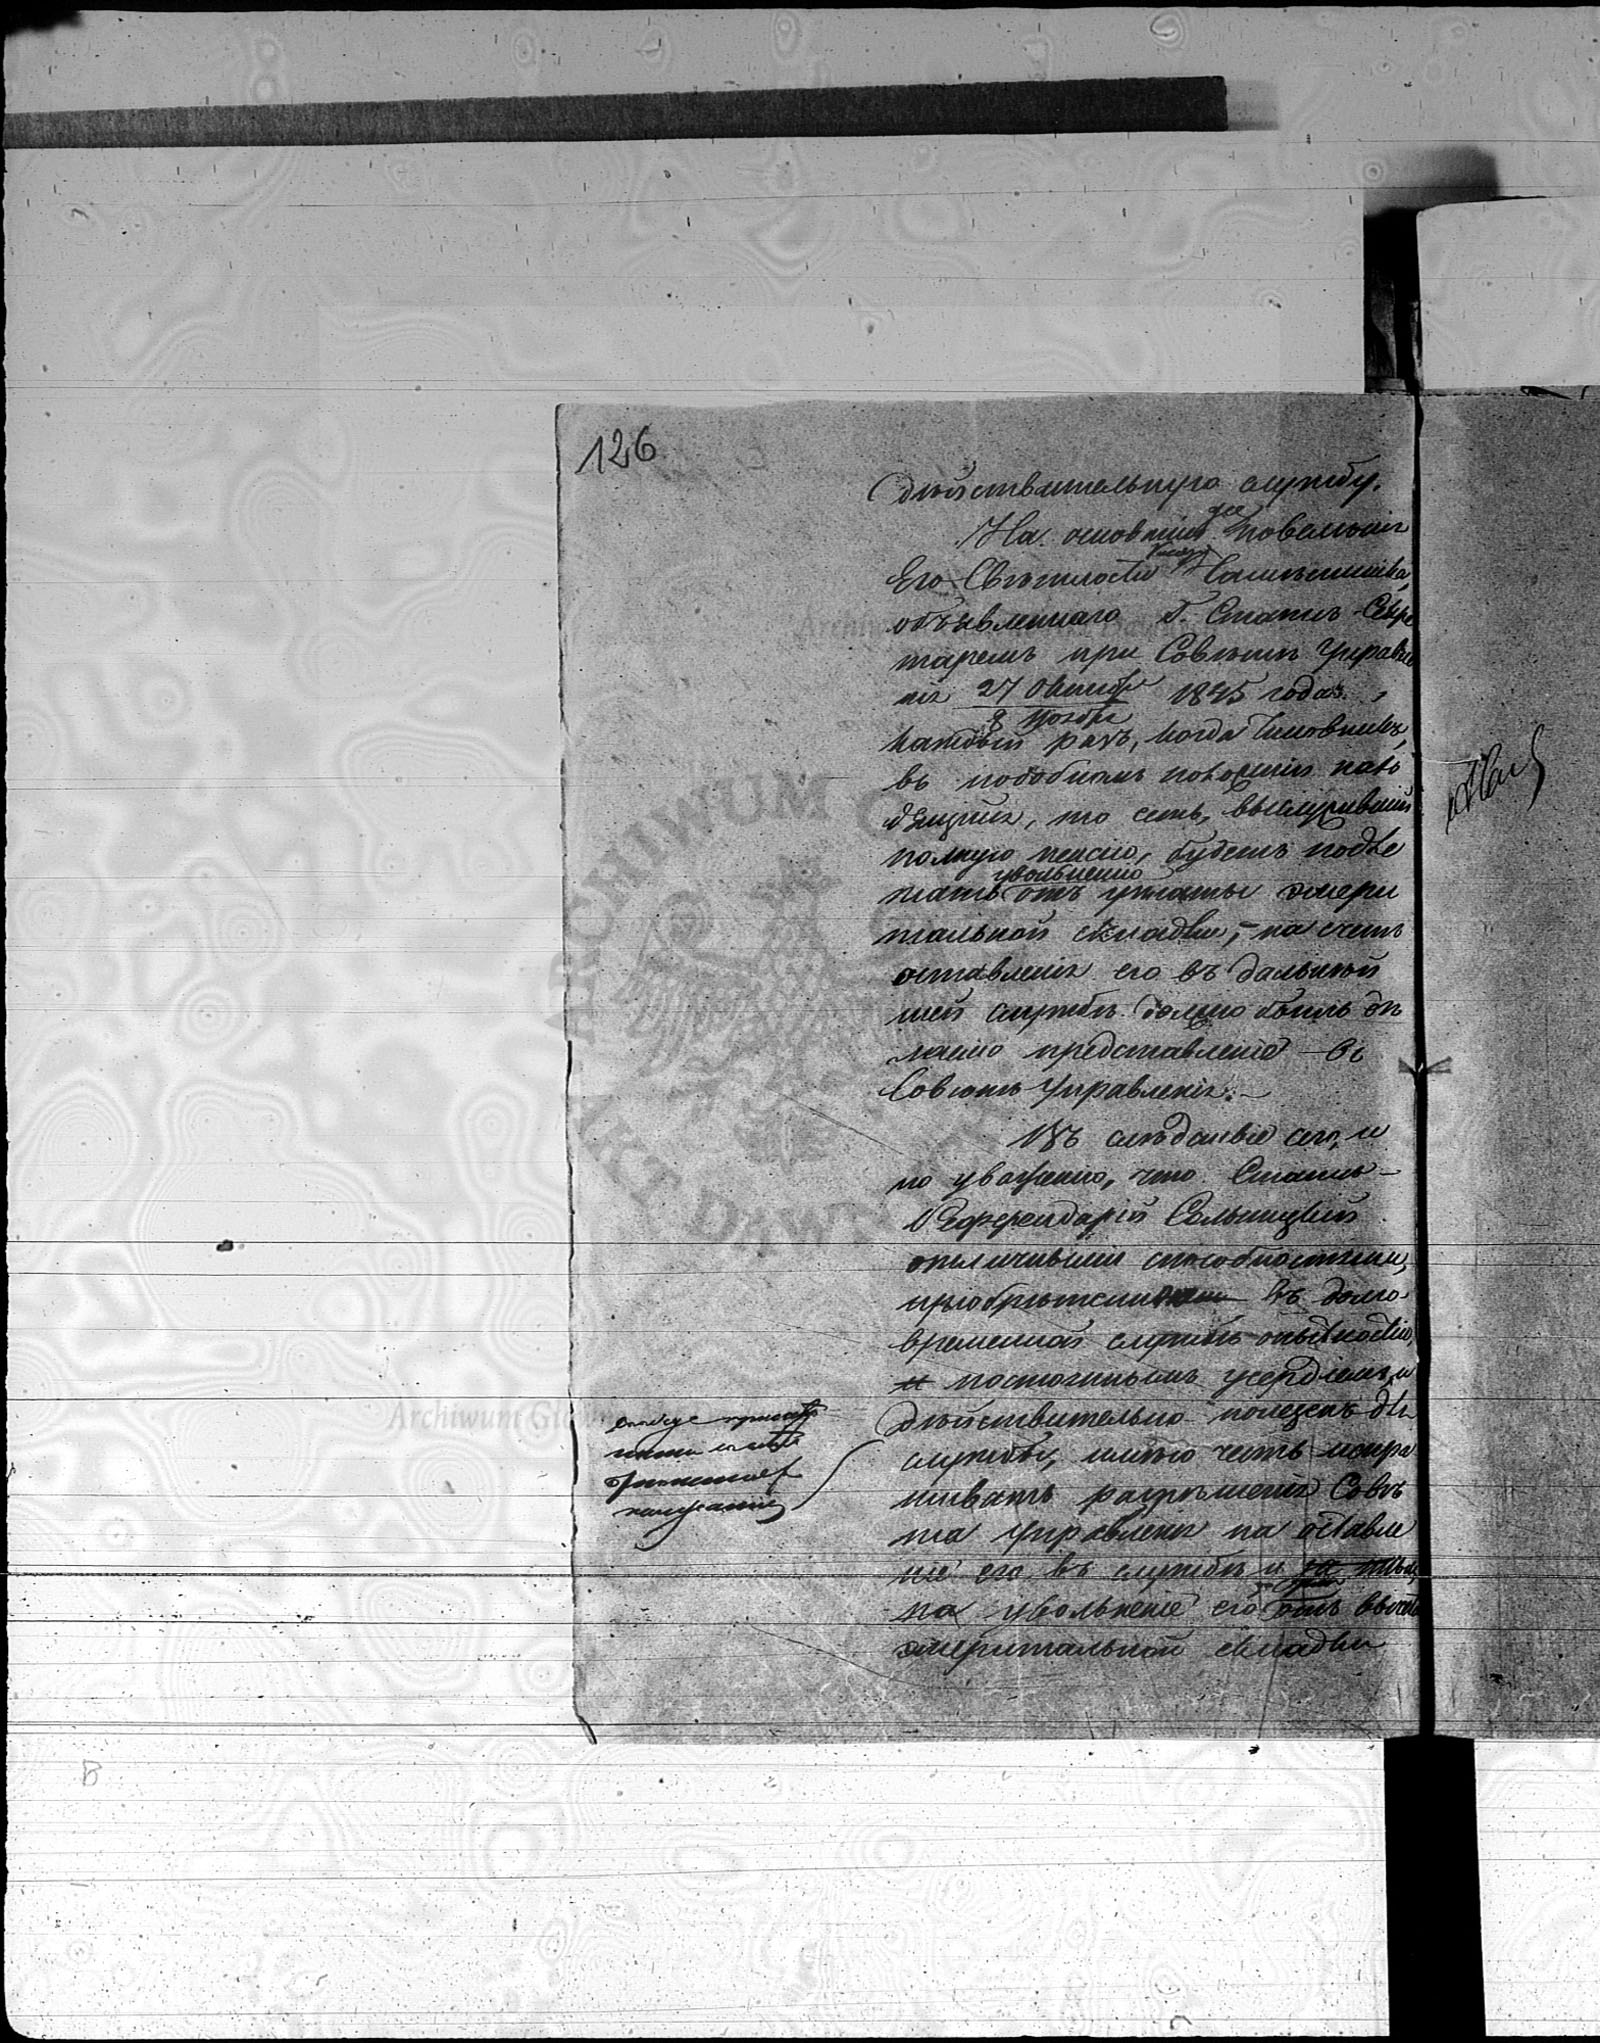 126
дѣйствительную службу.
На основаніи же повелѣнія
Его Свѣтлости Князя Намѣстника,
объявленнаго Г. Статсъ-Секре
таремъ при Совѣтѣ Управле
нія 27 Октября / 8 Ноября 1845 года,
каждый разъ, когда Чиновникъ,
въ подобномъ положеніи нахо
дящійся, то есть, выслужившій
полную пенсію, будетъ подле
жать увольненію отъ уплаты эмери
тальной складки, на счетъ
оставленія его въ дальнѣй
шей службѣ должно быть дѣ
лаемо представленіе въ
Совѣтъ Управленія.
Въ слѣдствіе сего, и
по уваженію, что Статсъ-
Референдарій
отличными способностями,
въ долго
временной службѣ опытностію,
и постояннымъ усердіемъ,
дѣйствительно полезенъ для
службы, имѣю честь испра
шивать разрѣшенія Совѣ
та Управленія на оставле
ніе его въ службѣ и
на увольненіе его отъ вычета
эмеритальной складки
Archiwum Gł
ARCHIWUM G
AKT DAWN